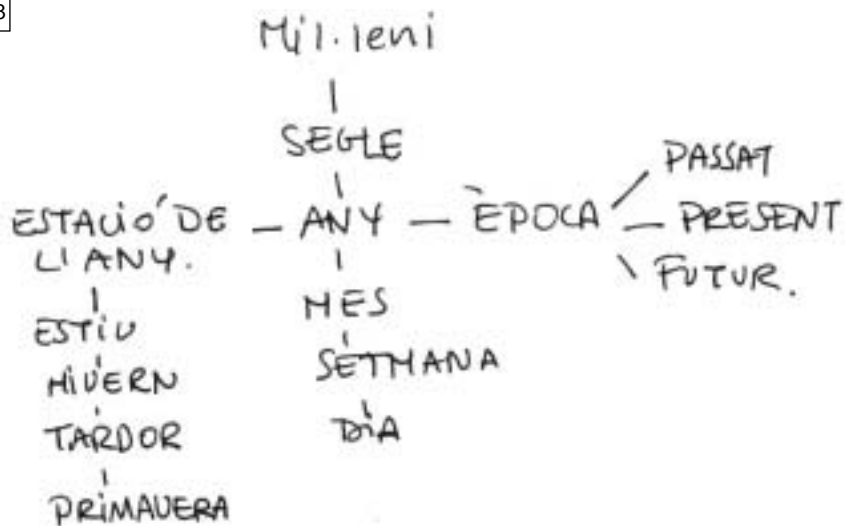 3
Mil·leni
SEGLE
ESTACIÓ DE L'ANY. – ANY – ÈPOCA
PASSAT
PRESENT
FUTUR.
ESTIU
HIVERN
TARDOR
PRIMAVERA
MES
SETMANA
DIA